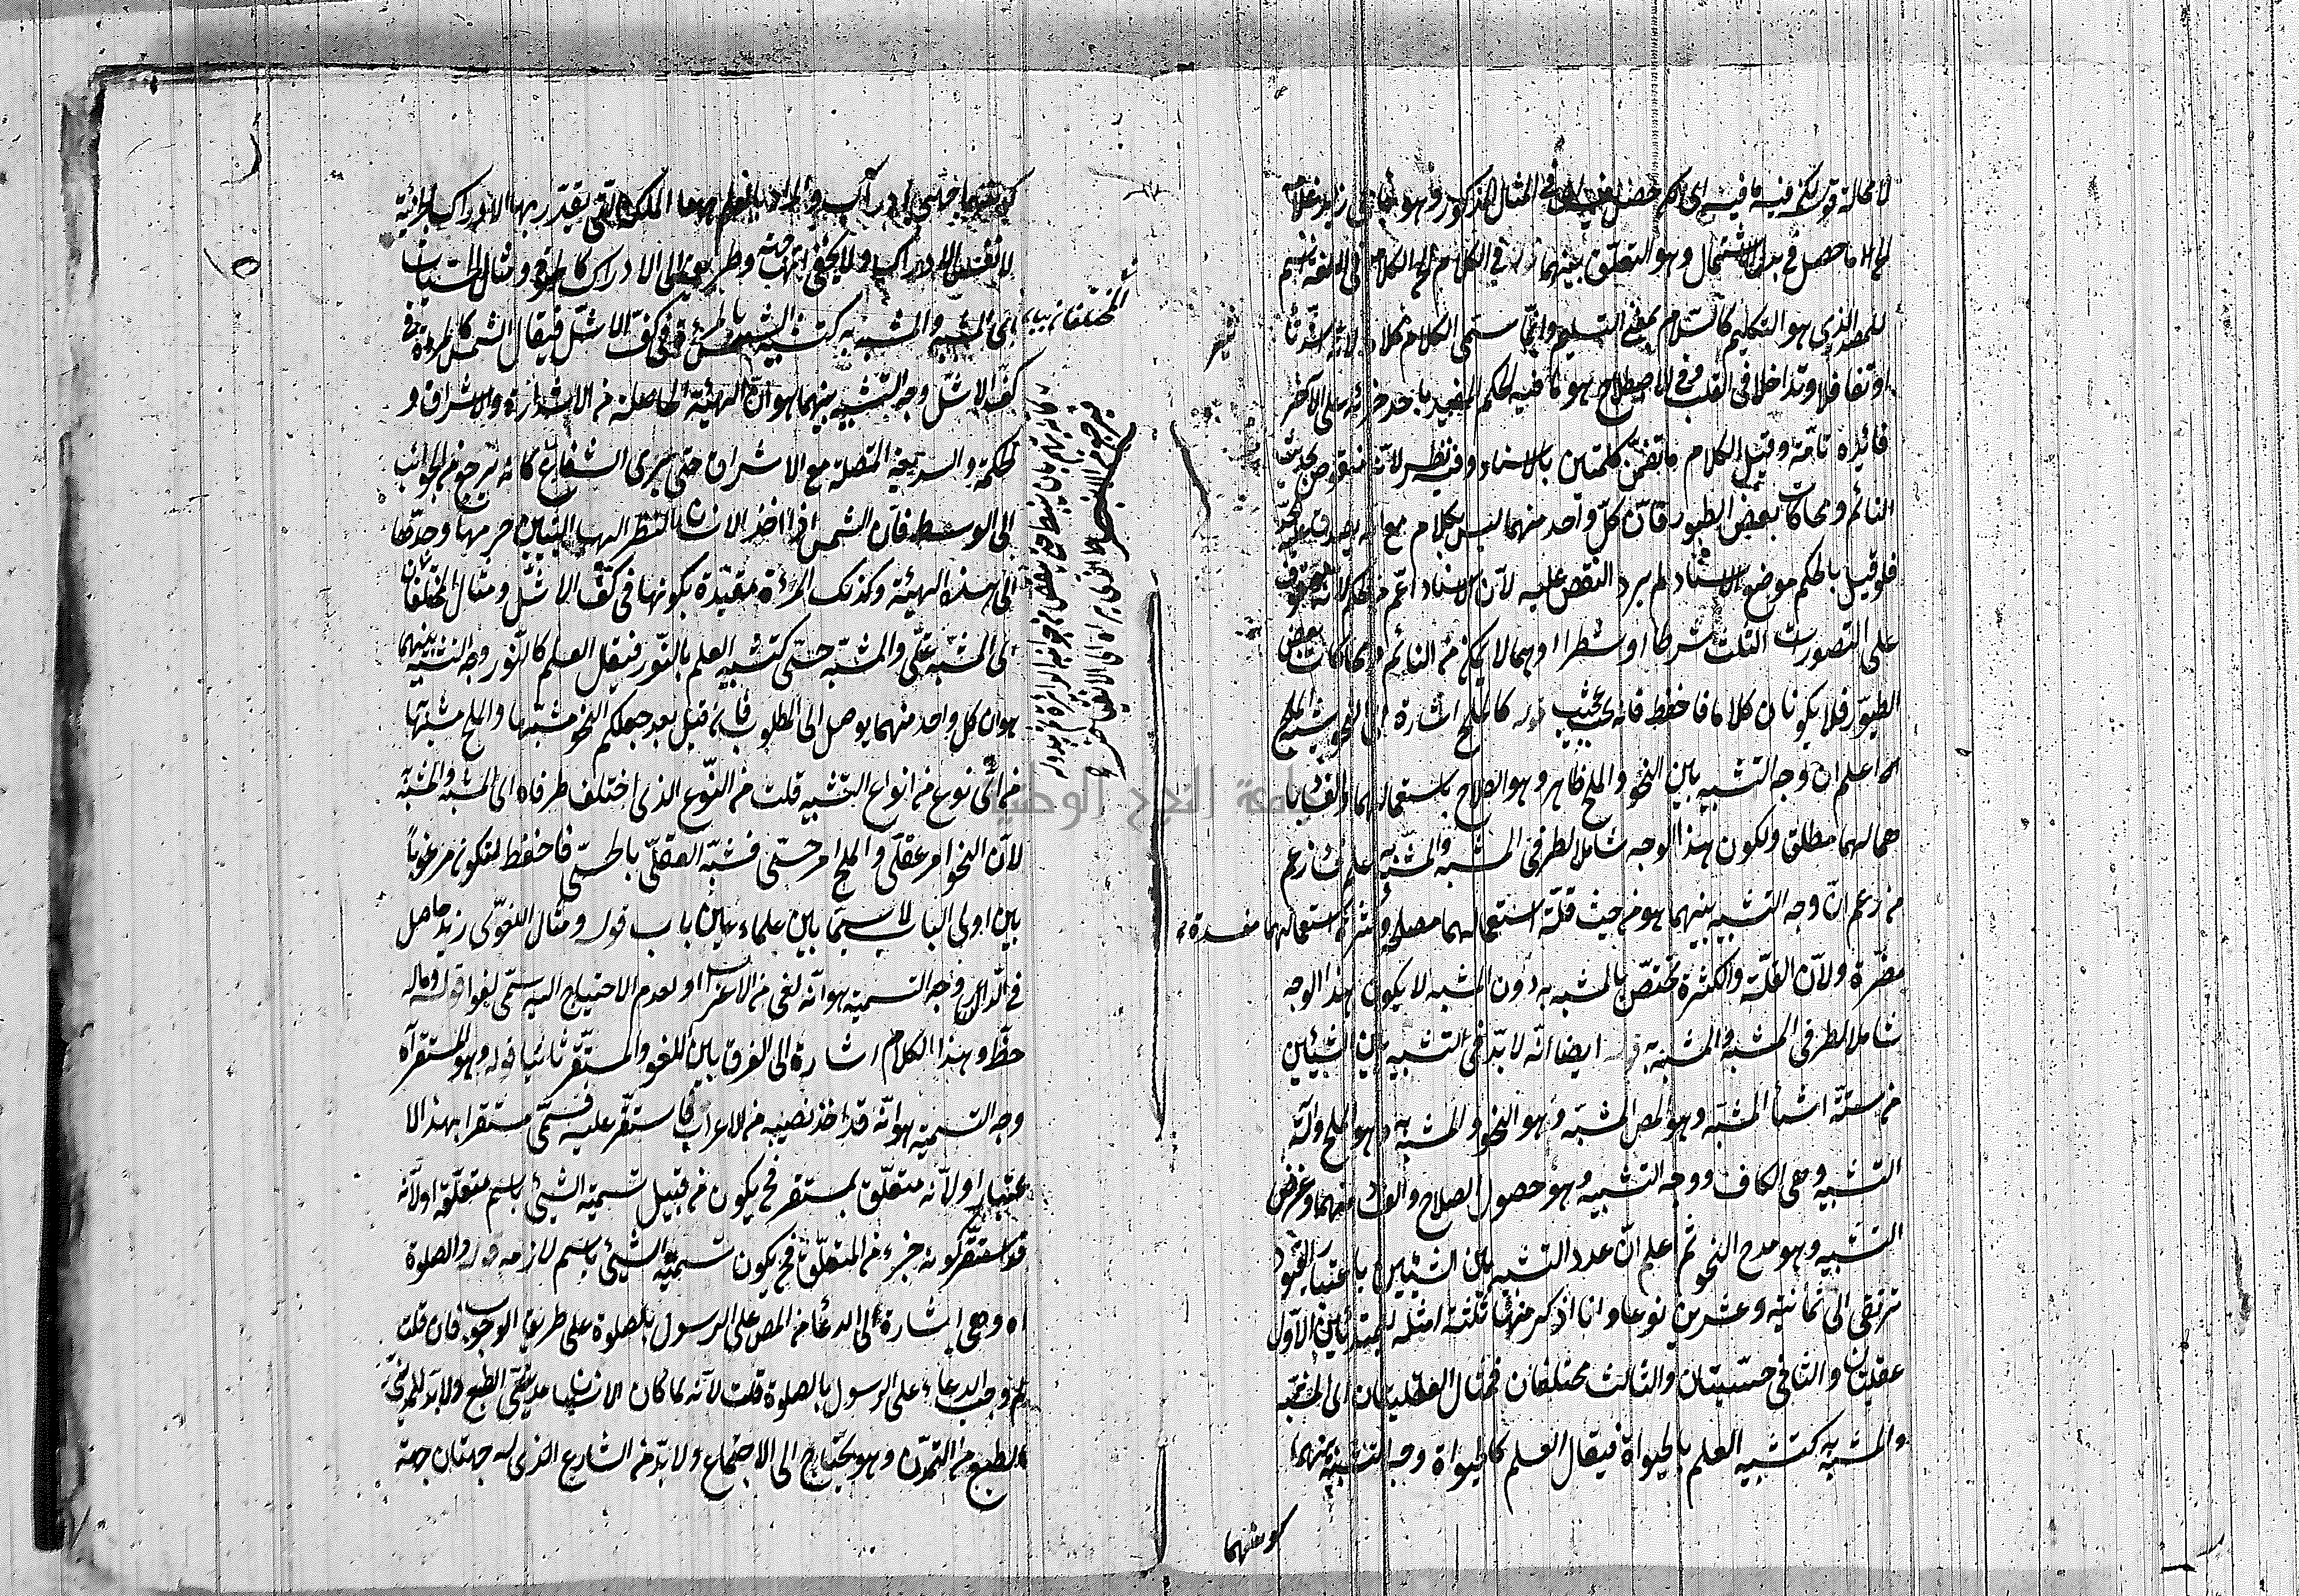 لا محالة قوله لكن فيه ما فيه اى لم حصل في المثال المذكور وهو زيد غلام
ما حصل في بدل الاشتمال وهو التعلق بينهما قوله في الكلام الكلام في اللغة اسم
للمصدر الذى هو التكليم كالسلام بمعنى التسليم وانما سمى الكلام كلاما لانه
فلا وتداخلا في القلب وفي الاصطلاح هو ما فيه الحكم المفيد باحد جزئيه على الآخر
فائدة تامة وقيل الكلام ما تضمن كلمتين بالاسناد وفيه نظر لانه منقوض بحديث
النائم ومحاكات بعض الطيور فان كل واحد منهما ليس بكلام مع انه يصدق عليه الحد
فلو قيل بالحكم موضع الاسناد لم يرد النقض عليه لان الاسناد اعم من الحكم لانه موقوف
على التصورات الثلث شرطا او شطرا وهما لا يمكن من النائم ومحاكات بعض
الطيور فلا يكونان كلاما فاحفظ فانه بحث عجيب قوله كالملح اشارة الى النحو شبيه الملح
اعلم ان وجه التشبيه بين النحو والملح ظاهر وهو الصلاح باستعمالهما والفساد با
همالهما مطلق ولكون هذا الوجه شاملا لطرفى المشبه والمشبه به علم فساد زعم
من زعم ان وجه التشبيه بينهما هو من حيث قلة استعمالهما مصلح وكثرة استعمالهما مفسدة
مضرة ولان القلة والكثرة تختص بالمشبه به دون المشبه لا يكون هذا الوجه
شاملا لطرفى المشبه والمشبه به ايضا انه لا بد في التشبيه بين الشيئين
من ستة اشيأ المشبه وهو المص المشبه وهو النحو والمشبه به وهو الملح وآلة
التشبيه وهى الكاف ووجه التشبيه وهو حصول الصلاح والفساد منهما وغرض
التشبيه وهو مدح النحو ثم اعلم ان عدد التشبيه بين الشيئين باعتبار القيود
ترتقى الى ثمانية وعشرين نوعا وانا اذكر منها ثلثة امثلة للمبتدئين الاول
عقليتان والثانى حسيتان والثالث مختلفان فمثال العقليتان اى المشبه
والمشبه به كتشبيه العلم بالحيواة فيقال العلم كالحيواة ووجه التشبيه بينهما
كونهما
كونهما جهتى ادراك والمراد بالعلم ههنا الملكة التى يقتدر بها الادراك الجزئية
لا نفس الادراك ولا يخفى انها جهة وطريق الى الادراك كالحيوة ومثال الحسيات
اى المشبه والمشبه به كتشبيه الشمس بالمرئة في كف الاشل فيقال الشمس كالمرءة في
كف الاشل وجه التشبيه بينهما هو ان الهيئة الحاصلة من الاستدارة والاشراق و
الحكمة والسريعة المتصلة مع الاشراق حتى يرى الشعاع كانه يرجع من الجوانب
الى الوسط فان الشمس اذا اخذ الانسان النظر اليها ليتبين جرمها وجدها
الى هذه الهيئة وكذلك المرءة مقيدة بكونها في كف الاشل ومثال المختلفان
اى المشبه عقلى والمشبه حسى كتشبيه العلم بالنور فيقال العلم كالنور وجه التشبيه بينهما
هو ان كل واحد منهما يوصل الى المطلوب فان قيل بعد جعلكم النحو مشبها والملح مشبها
من اى نوع من انواع التشبيه قلت من النوع الذى اختلف طرفاه اى المشبه والمشبه
لان النحو امر عقلى والملح امر حسى فشبه العقلى بالحسى فاحفظ لتكون مرغوبا
بين اولى الباب لا سيما بين علماء عين باب قوله ومثال اللغوى زيد حاصل
في الدار وجه التسمية هو انه لغى من الاعراب او لعدم الاحتياج اليه سمى لغوا قوله وماله
حظ وهذا الكلام اشارة الى الفرق بين اللغو والمستقر ثانيا قوله وهو المستقر آه
وجه التسمية هو انه قد اخذ نصيبه من الاعراب فاستقر عليه فسمى مستقرا بهذا الا
عتبار او لانه متعلق بمستقر فح يكون من قبيل تسمية الشيئ باسم متعلقه او لانه
قد استقر كونه جزء من المتعلق فح يكون تسمية الشيئ باسم لازمه قوله والصلوة
اه وهى اشارة الى الدعأ من المص على الرسول بالصلوة على طريق الوجوب فان قلت
لم وجب الدعاء على الرسول بالصلوة قلت لانه لما كان الانسان مدنى الطبع ولا بد للمدنى
الطبع من التمدن وهو يحتاج الى الاجتماع ولا بد من الشارع الذى له جهتان جهة
جامعة النجاح الوطنية